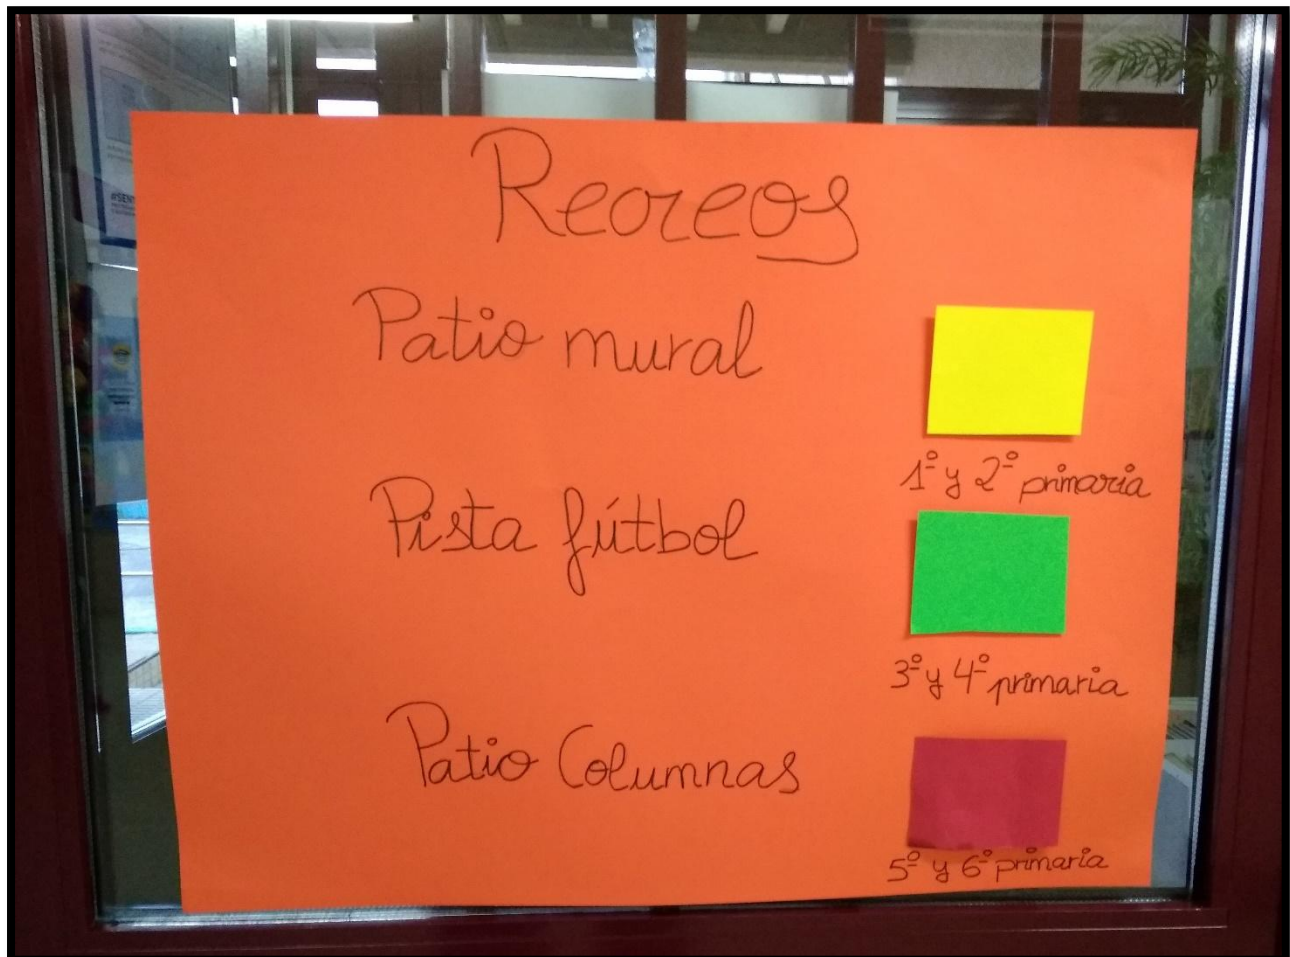 Recreos
Patio mural
1º y 2º primaria
Pista fútbol
3º y 4º primaria
Patio Columnas
5º y 6º primaria
#SEN